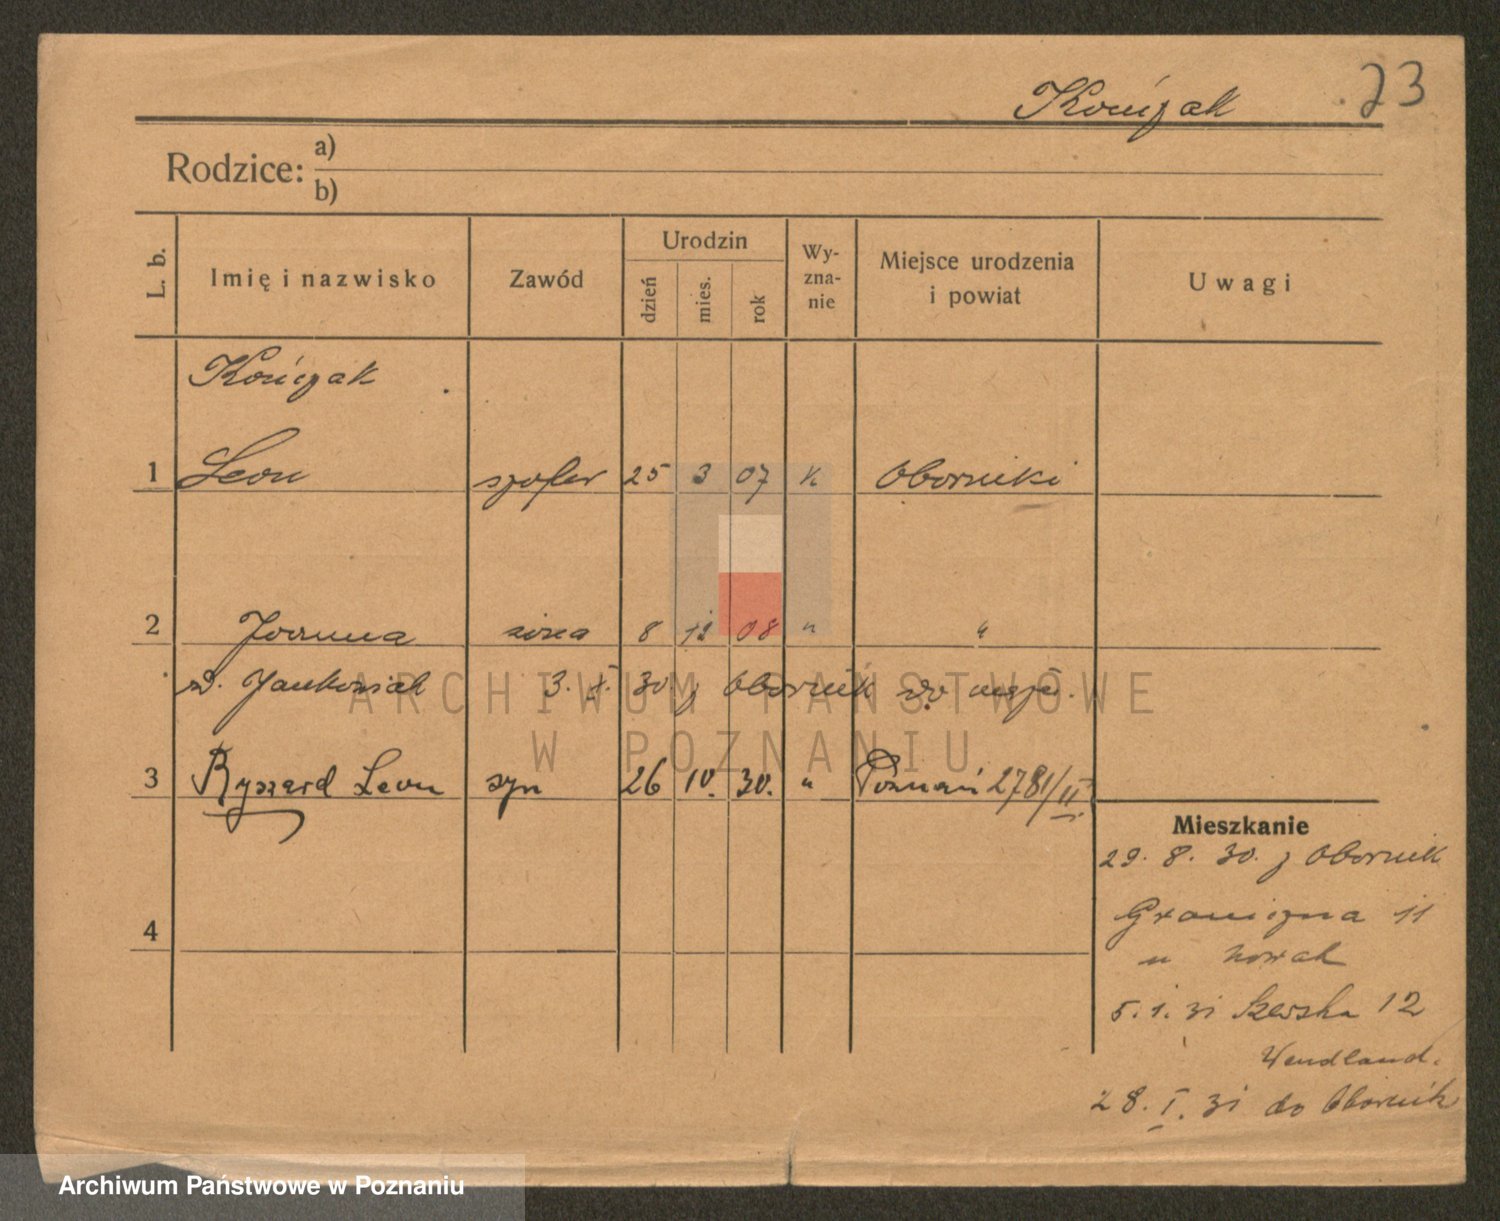 Kończak 23
Rodzice: a)
b)
L. b. Imię i nazwisko Zawód Urodzin dzień mies. rok Wy-zna-nie Miejsce urodzenia i powiat Uwagi
Kończak
1 Leon szofer 25 3 07 k Oborniki
2 Joanna żona 8 12 08 " "
d. Jankowiak 3. X. 30 z Obornik do męża.
ARCHIWUM PAŃSTWOWE
W POZNANIU
3 Ryszard Leon syn 26 10. 30. " Poznań 2781/II
Mieszkanie
29. 8. 30. z Obornik
4 Graniczna 11
u Nowak
5. 1. 31 Szewska 12
Wendland.
28. I. 31 do Obornik
Archiwum Państwowe w Poznaniu